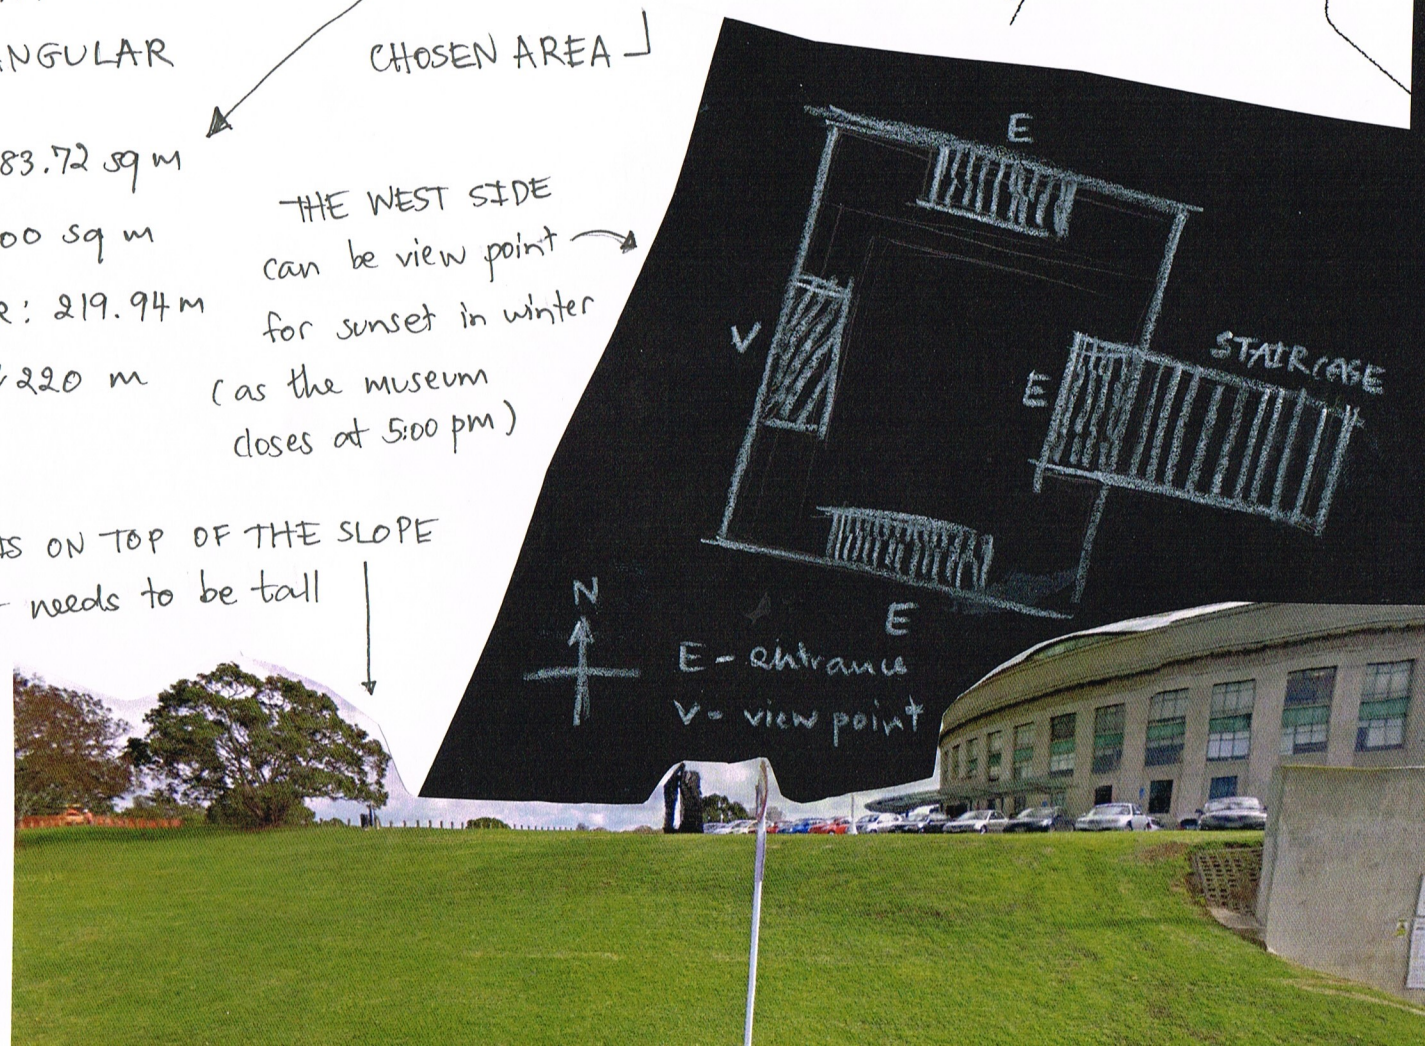 ANGULAR
CHOSEN AREA
83.72 sq m
00 sq m
R: 219.94 m
220 m
THE WEST SIDE
can be view point
for sunset in winter
(as the museum
closes at 5:00 pm)
ON TOP OF THE SLOPE
needs to be tall
E
V
E
STAIRCASE
E
N
E - entrance
V - view point